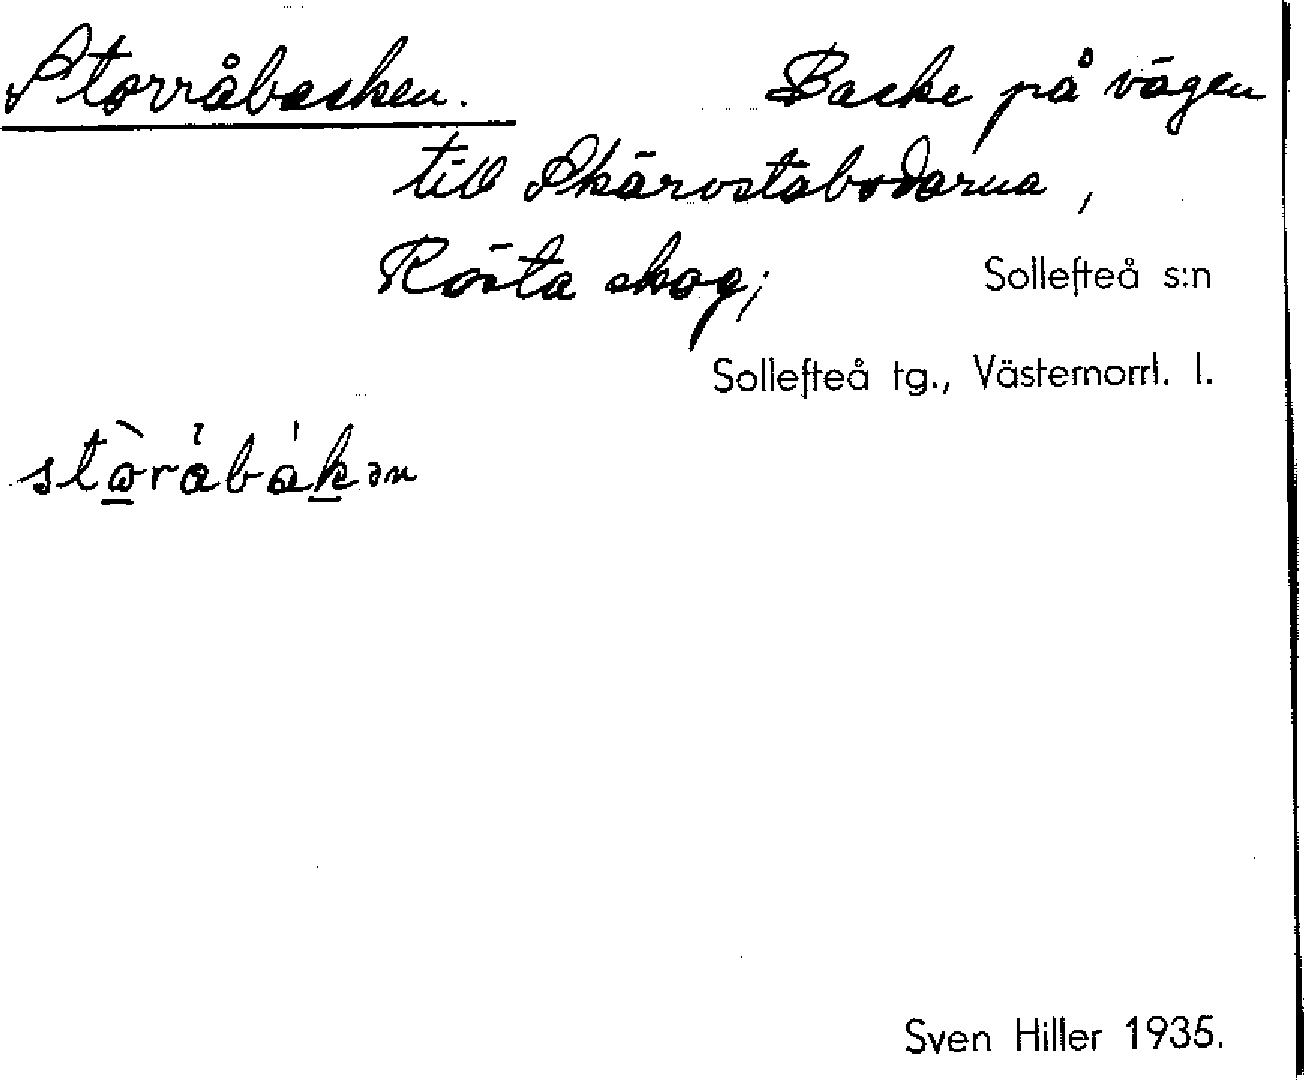 Storråbacken. Backe på vägen
till Skärvstabodarna,
Rösta skog; Sollefteå s:n
Sollefteå tg., Västernorrl. l.
Sven Hiller 1935.